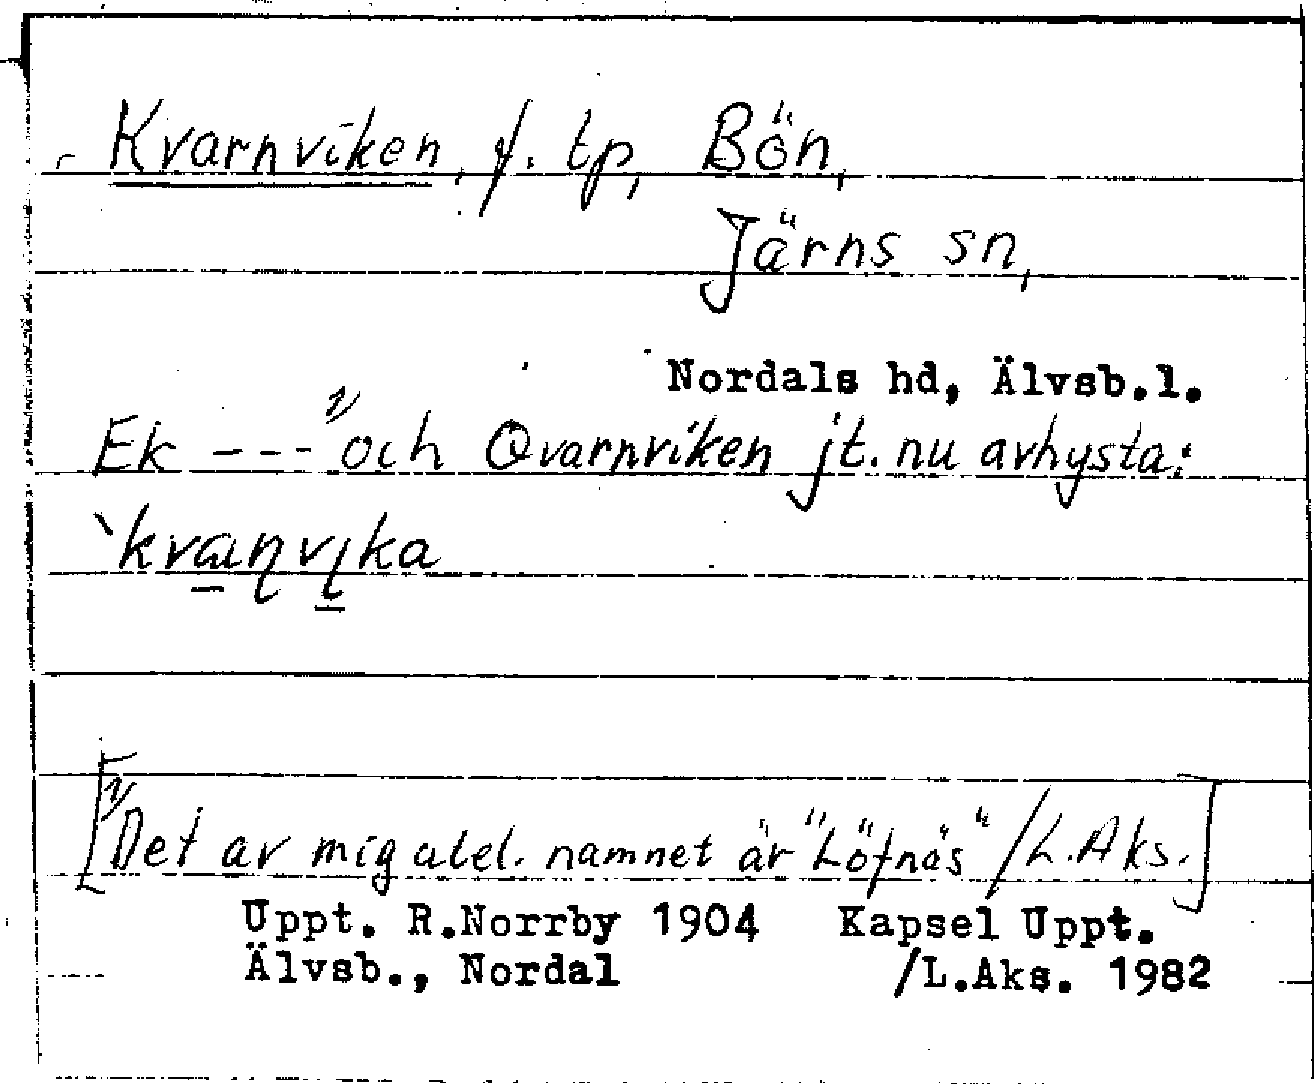 Kvarnviken, f. tp, Bön,
Järns sn,
Nordals hd, Älvsb.l.
Ek ---¹⁾ och Qvarnviken jt. nu avhysta:
`kvaɳvɩka
[¹⁾Det av mig utel. namnet är "Löfnäs" /L.Aks.]
Uppt. R.Norrby 1904 Kapsel Uppt.
Älvsb., Nordal /L.Aks. 1982